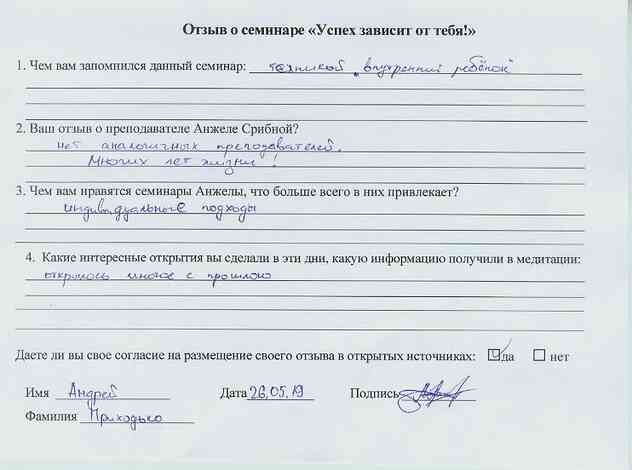 Отзыв о семинаре «Успех зависит от тебя!»
1. Чем вам запомнился данный семинар: техникой „внутренний ребёнок"
2. Ваш отзыв о преподавателе Анжеле Срибной?
нет аналогичных преподавателей.
Многих лет жизни!
3. Чем вам нравятся семинары Анжелы, что больше всего в них привлекает?
индивидуальные подходы
4. Какие интересные открытия вы сделали в эти дни, какую информацию получили в медитации:
открылось многое с прошлого
Даете ли вы свое согласие на размещение своего отзыва в открытых источниках: да нет
Имя Андрей Дата 26.05.19 Подпись
Фамилия Приходько